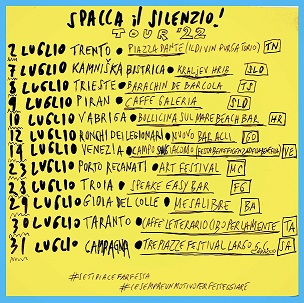 SPACCA iL SILENZIO!
TOUR '22
2 LUGLIO TRENTO • PIAZZA DANTE (IL DIVIN PURGATORIO) TN
7 LUGLIO KAMNIŠKA BISTRICA • KRALJEV HRIB SLO
8 LUGLIO TRIESTE • BARACHIN DE BARCOLA TS
9 LUGLIO PIRAN • CAFFE GALERIA SLO
10 LUGLIO VABRIGA • BOLLICINA SUL MARE BEACH BAR HR
12 LUGLIO RONCHI DEI LEGIONARI • NUOVO BAR ACLI GO
14 LUGLIO VENEZIA • CAMPO SAN GIACOMO VE
23 LUGLIO PORTO RECANATI • ART FESTIVAL MC
28 LUGLIO TROIA • SPEAKE EASY BAR FG
29 LUGLIO GIOIA DEL COLLE • MESALIBRE BA
30 LUGLIO TARANTO • CAFFE LETTERARIO CIBO PER LA MENTE TA
31 LUGLIO CAMPAGNA • TRE PIAZZE FESTIVAL LARGO SA
#SETIPIACEFAIFESTA
#CESEMPREUNMOTIVOPERFESTEGGIARE